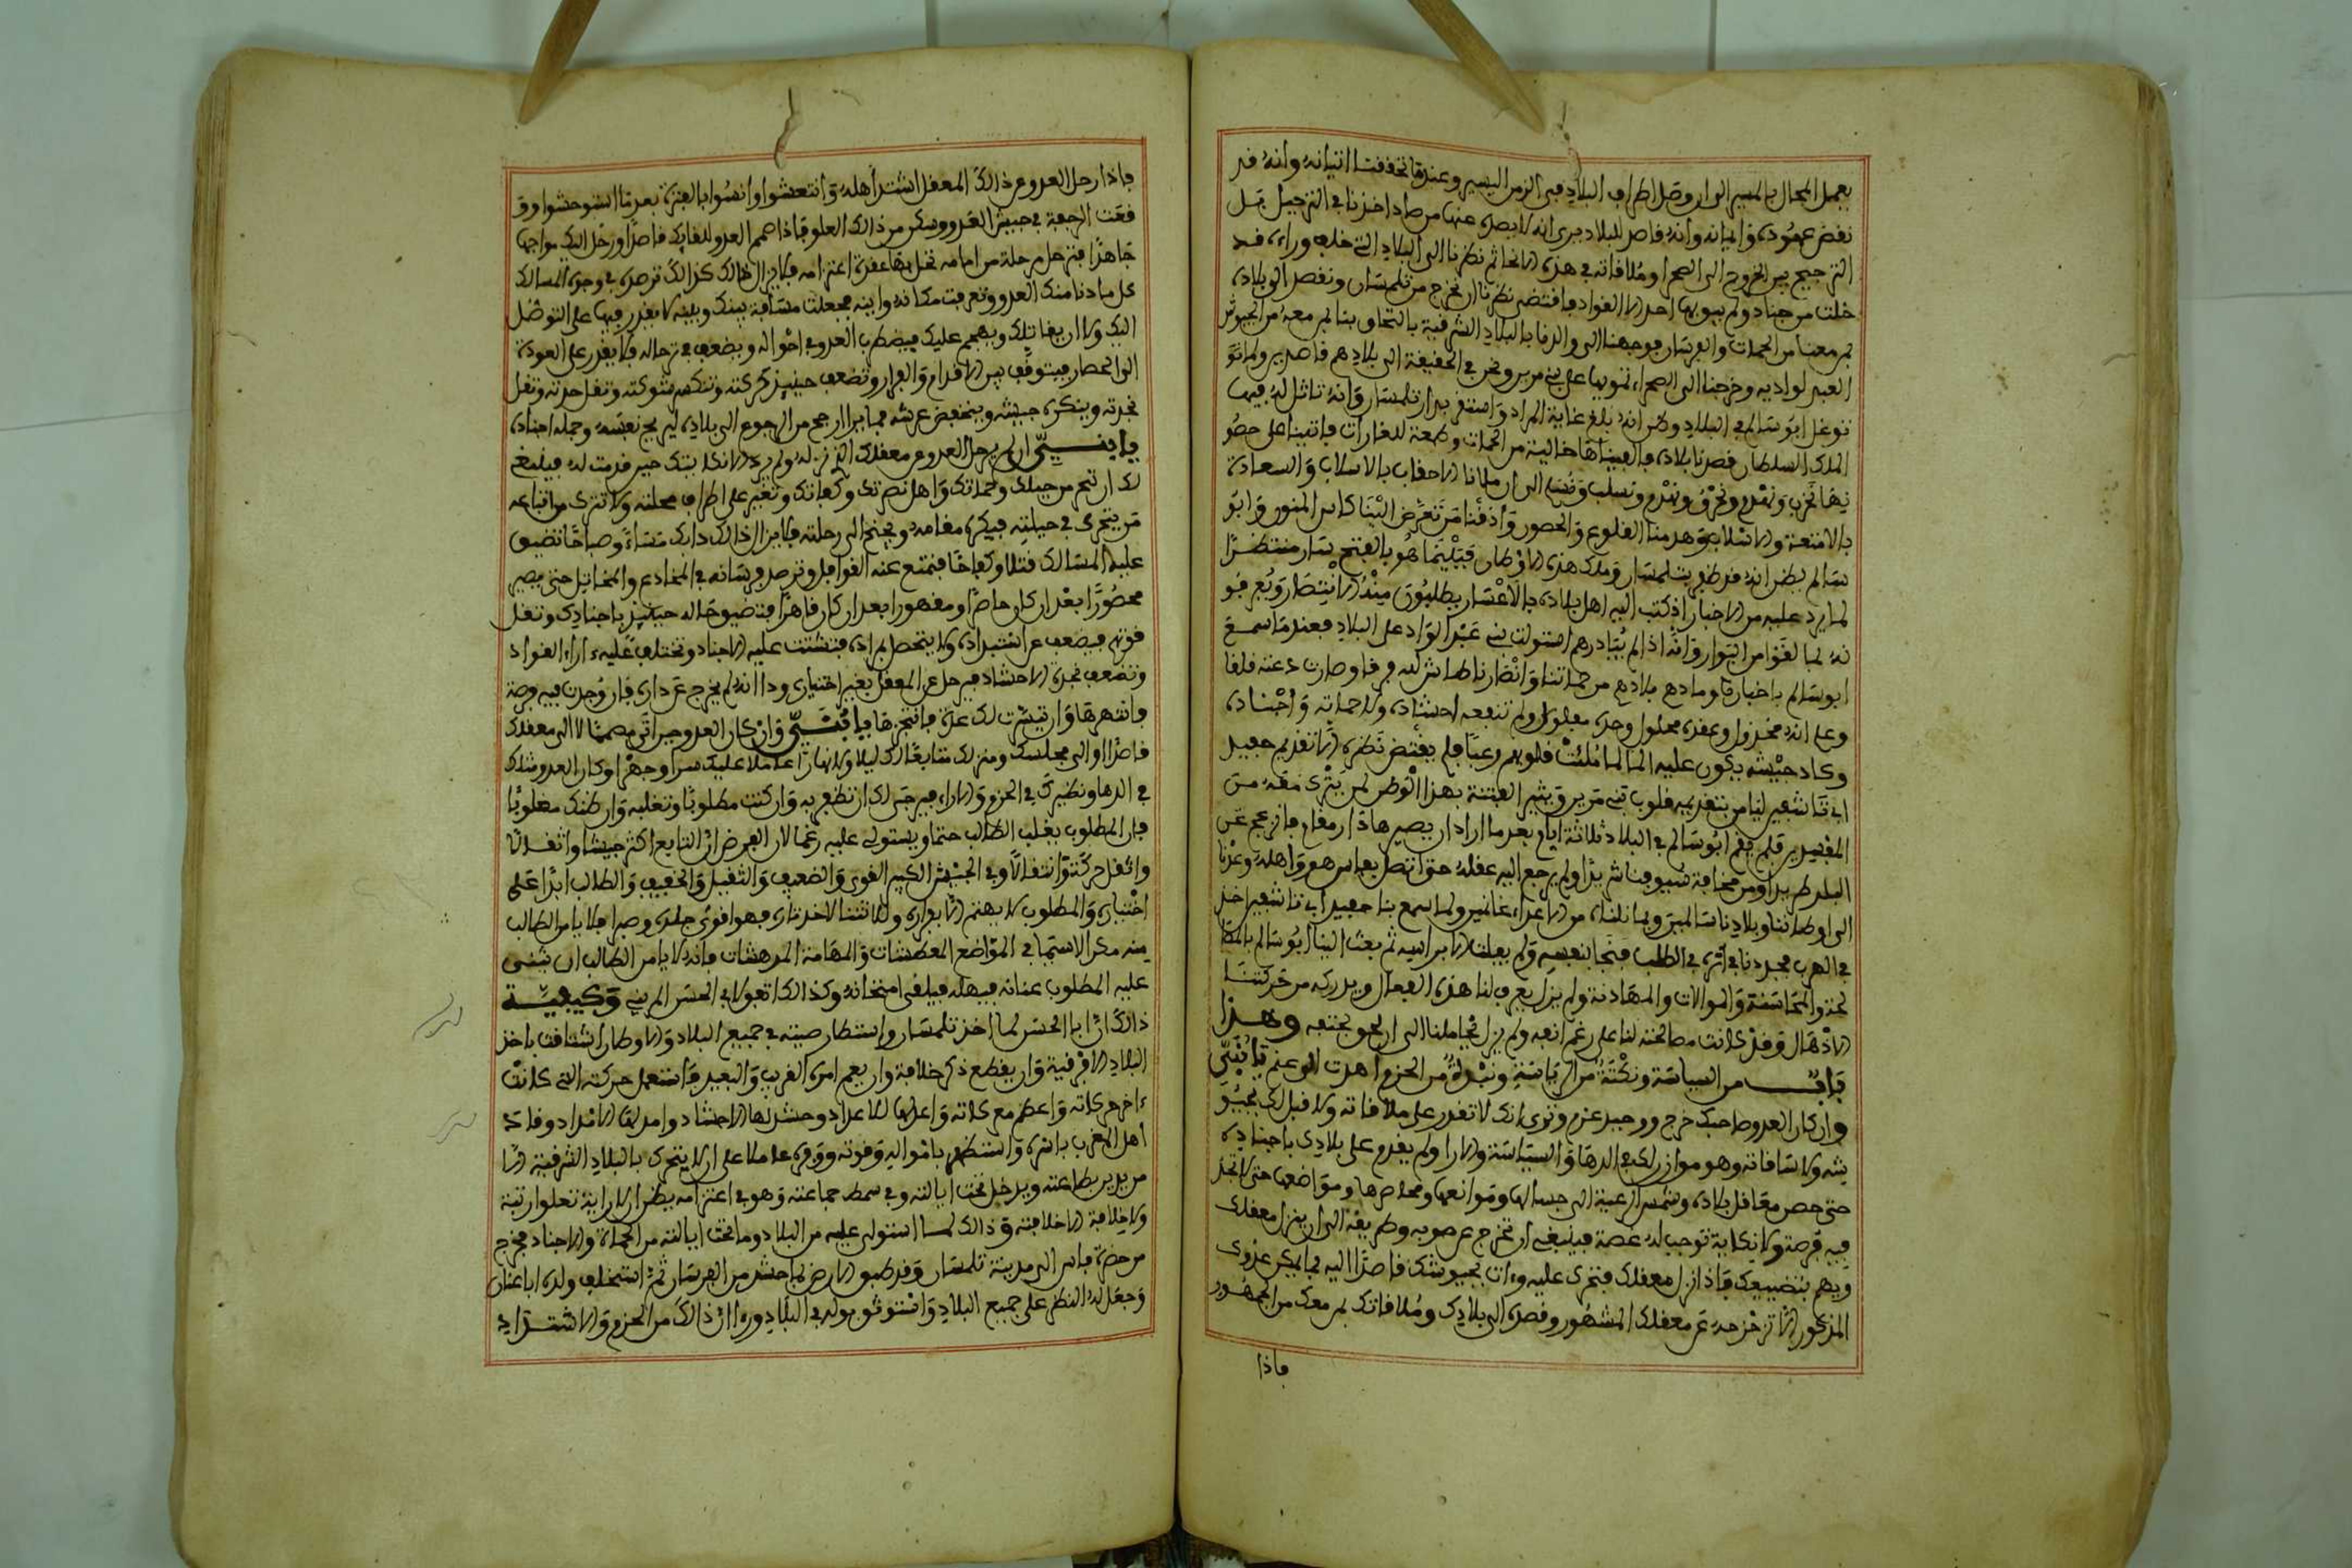 يعمل المحال بالمسير الى ان وصل اطراف البلاد في الزمن اليسير وعندما تحققنا اتيانه وانه قد
نقض عهوده وايمانه وانه قاصد للبلاد يرى انه لا يصده عنها من صاد اخذنا في الترجيل قبل
الترجيح بين الخروج الى الصحرا وملاقاته في هذه الانحا ثم نظرنا الى البلاد التي خلف وراءه قد
خلت من جناد ولم يبق بها احد الا القواد فاقتضى نظرنا ان نخرج من تلمسان ونقصد الى بلاده
بمن معنا من الحماة والفرسان فوجهنا الى والدنا بالبلاد الشرقية بالتحاق بنا بمن معه من الجيوش
العبد لوادية وخرجنا الى الصحراء تمويها على بني مرين ونحن في الحقيقة الى بلادهم قاصدين ولما
توغل ابو سالم في البلاد وظن انه بلغ غاية المراد واستقر بدار تلمسان وانه تاثل له فيها
الملك والسلطان قصدنا بلاده فالفيناها خالية من الحماة وطمعة للغارات فاتينا على حصو
نها نخرب ونهدم ونحرق ونهدم ونسلب الى ان ملانا الاحقاب بالاسلاب والسعادة
بالامتعة والاسلاب وهدمنا القلوع والحصون واذقنا من تعرض الينا كاس المنون وابو
سالم يظن انه قد ظفر بتلمسان وملك هذه الاوطان فبينما هو بالفتح سار منتظرا
لما يرد عليه من الاخبار اذ كتب اليه اهل بلاده بالاعسار يطلبون منه الانتصار ويعرفو
نه لما لقوا من البوار وانه اذا لم يبادرهم استولت بنو عبد الواد على البلاد فعندما سمع
ابو سالم باخبارنا وما دهم بلادهم من حماتنا وانصارنا طاش لبه فرقا وصارت دعته قلقا
وعلم انه مخذول وعقده محلول وحده مفلول ولم تنفعه احشاده ولا حماته واجناده
وكاد جيشه يكون عليه الما لما ملئت قلوبهم رعبا فلم يقتض نظره الا تقديم حفيد
ابي تاشفين ليامن بتقديمه قلوب بني مرين ويثير الفتنة بهذا الوطن لمن يترك معه من
المفسدين فلم يقم ابو سالم في البلاد ثلاثة ايام بعد ما اراد ان يصيرها دار مقام فانزعج عن
البلد طريدا ومن مخافة سيوفنا شريدا ولم يرجع اليه عقله حتى اتصل بفاس هو واهله وعدنا
الى اوطاننا وبلادنا سالمين وبما نلناه من الاعداء غانمين ولما سمع بنا حفيد ابي تاشفين اخذ
في الهرب فجددنا في اثره في الطلب فنجا بنفسه ولم يفلت الا براسه ثم بعث الينا ابو سالم بالمصا
لحة والمحاسنة والموالات والمهادنة ولم يزل يعرف لنا هذه الفعال ويدركه من حركتنا
الاذهال وقد كانت مصالحته لنا على رغم انفه ولم يزل يجاملنا الى ان لحق بحتفه وهذا
باب من السياسة ونكتة من الرياسة ونبذة من الحزم اهدت الى عزم يا بني
وان كان العدو صاحبك خرج ووجد عزم وترى انك لا تقدر على ملاقاته ولا قبل لك بجيو
شه ولا مسافاته وهو موازن لك في الدها والسياسة والارا ولم يقدم على بلادك باجناده
حتى حصن معاقل بلاده وشمس الرعية الى جبالها وموانعها ومحارزها ومواضعها حتى لا تجد
فيه فرصة ولا نكاية توجب له غصة فينبغي ان تخرج عن صوبه وطريقه الى ان ينزل معقلك
ويهم بتضييعك فاذا نزل معقلك فتجرى عليه وات بجيوشك قاصدا اليه فما يمكن عدوك
المذكور الا تزحزحه عن معقلك المشهور وقصده الى بلادك وملاقاتك بمن معك من الجمهور
فاذا
فاذا رحل العدو عن ذلك المعقل اشتد اهله وانتعشوا وانسوا بالعزة بعد ما استوحشوا وو
قعت الرجفة في جيش العدو وسكن من ذلك العلو فاذا صمم العدو للقائك قاصدا ورحل اليك مواجها
جاهدا فترحل مرحلة من امامه تحل بها عقدة اعتزامه فلا يزال ذلك كذلك ترصده في وجوه المسالك
كل ما دنا منك العدو وتعرفت مكانه واينه فجعلت مسافة بينك وبينه لا يقدر فيها على التوصل
اليك ولا ان يقاتلك ويهجم عليك فيضطرب العدو في احواله ويضعف في ترحاله فلا يقدر على العودة
الى الحصار فيتوقف بين الاقدام والفرار وتضعف حينيذ حركته وتنكسر شوكته وتفل حدته وتقل
نجدته وينكره جيشه وينخفض عرشه فما يرا ارجح من الرجوع الى بلاده ليريح نفسه وجملة اجناده
يا بني ان لم يرحل العدو عن معقلك الذي نزله ولم يرد الانكلا بتك حين قدمت له فينبغي
لك ان تتحر من جيلك وحماتك واهل نصرتك وكفاتك وتغير على اطراف محلته ولا تترك من اتباعه
من يتحرى في حيلته فيكره مقامه ويجنح الى رحلته فلا يزال ذلك دابك مساء وصباحا تضيق
عليه المسالك قتلا وكفاحا فتمنع عنه القوافل وترصد فرسانه في المخادع والمخاتل حتى يصير
محصورا بعد ان كان حاصرا ومقهورا بعد ان كان قاهرا فتضيق حاله حينيذ باجنادك وتقل
قوته فيضعف عن استبداده ولا يتحصل لمراده فتشتت عليه الاجناد وتختلف عليه اراء القواد
وتضعف نجدة الاحشاد فيرحل عن المعقل بغير اختياره ودا انه لم يخرج عن داره فان وجدت فيه فرصة
فانتهزها وان تيسرت لك عدة فانتجزها يا بني وان كان العدو حين اتى مصمما لا الى معقلك
قاصدا او الى مجلسك ومنزلك متابعا لك ليلا ونهارا عاملا عليك سرا وجهرا وكان العدو مثلك
في الدها ونظيرك في الحزم والاراء فيرجى لك ان تظفر به وان كنت مطلوبا وتغلبه وان ظنك مغلوبا
فان المطلوب يغلب الطالب حتما ويستولى عليه رغما لان الفرض ان التابع اكثر جيشا واثقالا
واثقل حركة وانتقالا وفي الجيش الكبير القوى والضعيف والثقيل والخفيف والطالب ابدا على
اختياره والمطلوب لا يهتم الا بفراره ولا ينثنا لاخذ ثاره فهو اقوى جلدا وصبرا فلا يامن الطالب
منه مكرا لا سيما في المواضع المعطشات والمهامة المدهشات فانه لا يامن الطالب ان يثنى
عليه المطلوب عنانه فيهلكه فيلقى امتحانه وكذلك اتفق لابي الحسن المريني وكيفية
ذلك ان ابا الحسن لما اخذ تلمسان واستطار صيته في جميع البلاد والاوطان اشتاقت باخذ
البلاد الافريقية وان يقطع ذكر خلافة وان يعم امره القريب والبعيد فاستعمل حركته التي كانت
ءاخر حركاته واعظم معركاته واعد لها الاعداد وحشد لها الاحشاد وامد لها الامداد وقاد
اهل المغرب باسره واستظهر بامواله وقوته ووفره عاملا على ان لا يترك بالبلاد الشرقية الا
من يدين بطاعته ويدخل تحت ايالته وفي سمط جماعته وهو في اعتزامه يظن ان لا راية تعلوا رتبة
ولا خلافة الا خلافته وذلك لما استولى عليه من البلاد وما تحت ايالته من الحماة والاجناد فخرج
من حضرة فاس الى مدينة تلمسان وقد طبق الارض بما حشد من الفرسان ثم استخلف ولده اباعنان
وجعل له النظر على جميع البلاد واستوثق بولده في البلاد ورءا ان ذلك من الحزم والاشتداد